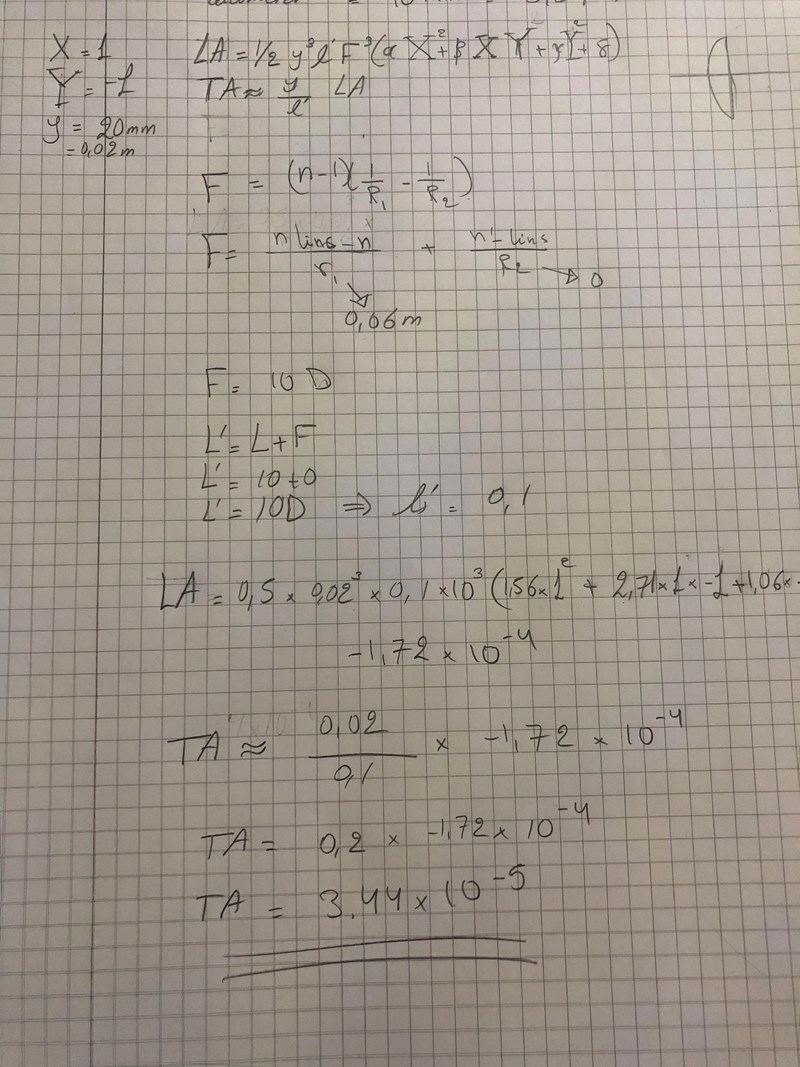 X = 1
Y = -1
y = 20mm
= 0,02 m
LA = 1/2 y³ l' F³ (α X² + β X Y + γ Y² + δ)
TA ≈ y/l' LA
F = (n-1)(1/R₁ - 1/R₂)
F = n lins - n / r₁ + n' - lins / R₂ → 0
0,06 m
F = 10 D
L' = L + F
L' = 10 + 0
L' = 10D ⇒ l' = 0,1
LA = 0,5 × 0,02³ × 0,1 × 10³ (1,56 × 1² + 2,71 × 1 × -1 + 1,06 × -
-1,72 × 10⁻⁴
TA ≈ 0,02 / 0,1 × -1,72 × 10⁻⁴
TA = 0,2 × -1,72 × 10⁻⁴
TA = 3.44 × 10⁻⁵